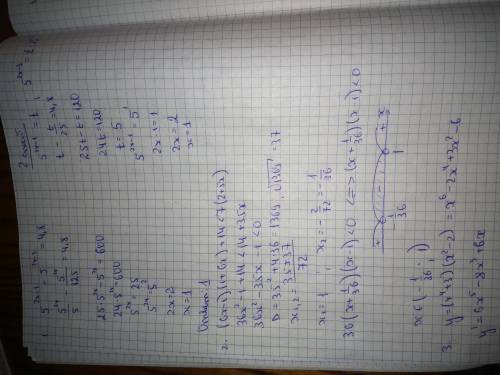 1. 5^{2x-1} - 5^{2x-3} = 4,8
5^{2x}/5 - 5^{2x}/125 = 4,8
25·5^{2x} - 5^{2x} = 600
24·5^{2x} = 600
5^{2x} = 25
5^{2x} = 5^2
2x = 2
x = 1
2
5^{2x-1} = t
t - t/25 = 4,8
25t - t = 120
24t = 120
t = 5
5^{2x-1} = 5^1
2x - 1 = 1
2x = 2
x = 1
5^{2x-1} = t
: 1
2. (6x-1)(1+6x)+14 < 7(2+5x)
36x^2 - 1 + 14 < 14 + 35x
36x^2 - 35x - 1 < 0
D = 35^2 + 4·36 = 1369, √1369 = 37
x_{1,2} = (35±37)/72
x_1 = 1 ; x_2 = -2/72 = -1/36
36(x + 1/36)(x-1) < 0 <=> (x + 1/36)(x-1) < 0
+ - + x
-1/36 1
x ∈ (-1/36 ; 1)
3. y = (x^4+3)(x^2-2) = x^6 - 2x^4 + 3x^2 - 6
y' = 6x^5 - 8x^3 + 6x